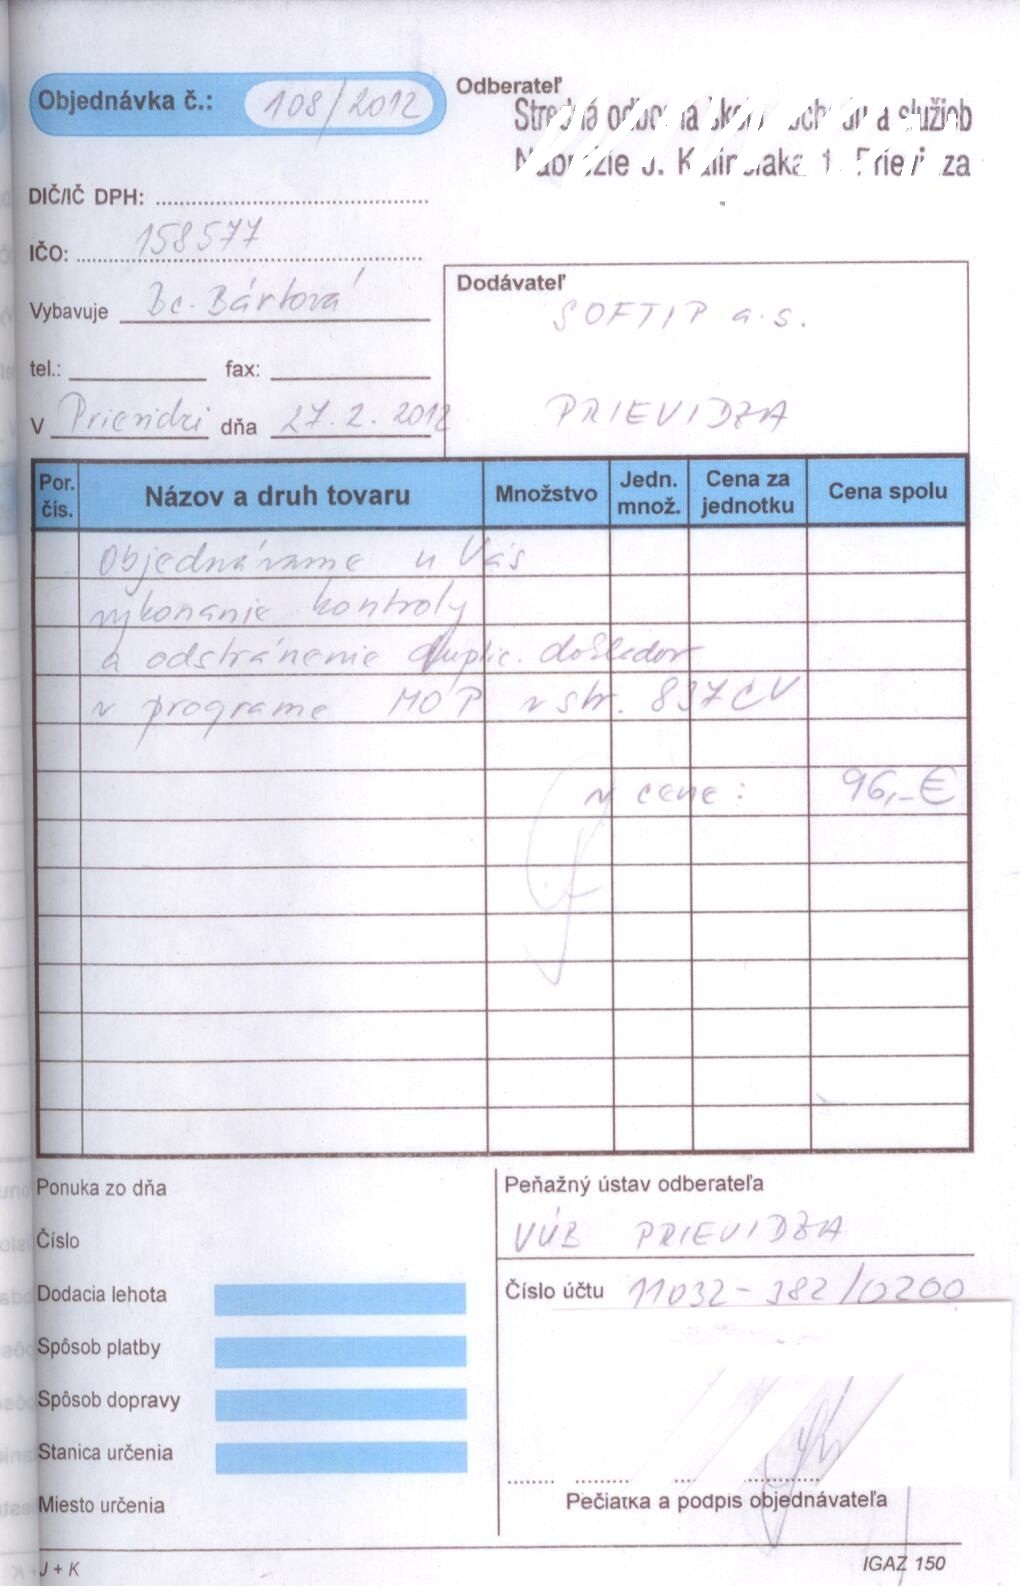 Objednávka č.: 108/2012
Odberateľ
Stredná odborná škola obchodu a služieb
Nábrežie J. Kalinčiaka 1, Prievidza
DIČ/IČ DPH:
IČO: 158577
Vybavuje Bc. Bártová
tel.: fax:
V Prievidzi dňa 27.2.2012
Dodávateľ
SOFTIP a.s.
PRIEVIDZA
Por. čís. Názov a druh tovaru Množstvo Jedn. množ. Cena za jednotku Cena spolu
Objednávame u Vás
vykonanie kontroly
a odstránenie duplic. došledov
v programe MOP v str. 837CV
v cene: 96,-€
Ponuka zo dňa
Číslo
Dodacia lehota
Spôsob platby
Spôsob dopravy
Stanica určenia
Miesto určenia
Peňažný ústav odberateľa
VÚB PRIEVIDZA
Číslo účtu 11032-382/0200
Pečiatka a podpis objednávateľa
J + K
IGAZ 150